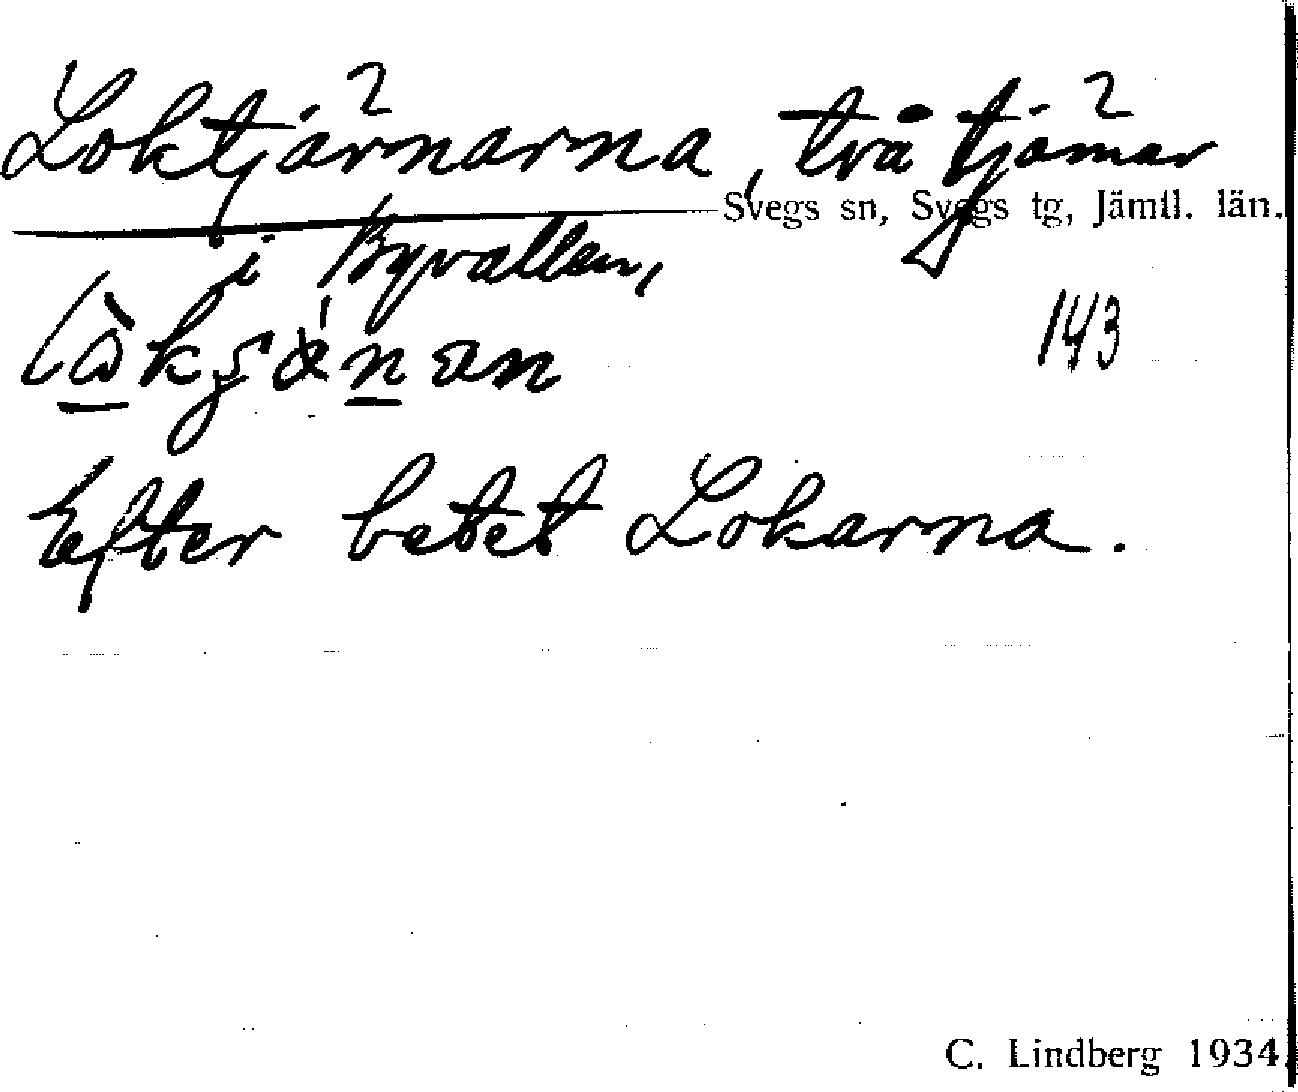 Loktjärnarna, två tjärnar
Svegs sn, Svegs tg, Jämtl. län.
i Byvallen,
143
Efter betet Lokarna.
C. Lindberg 1934.